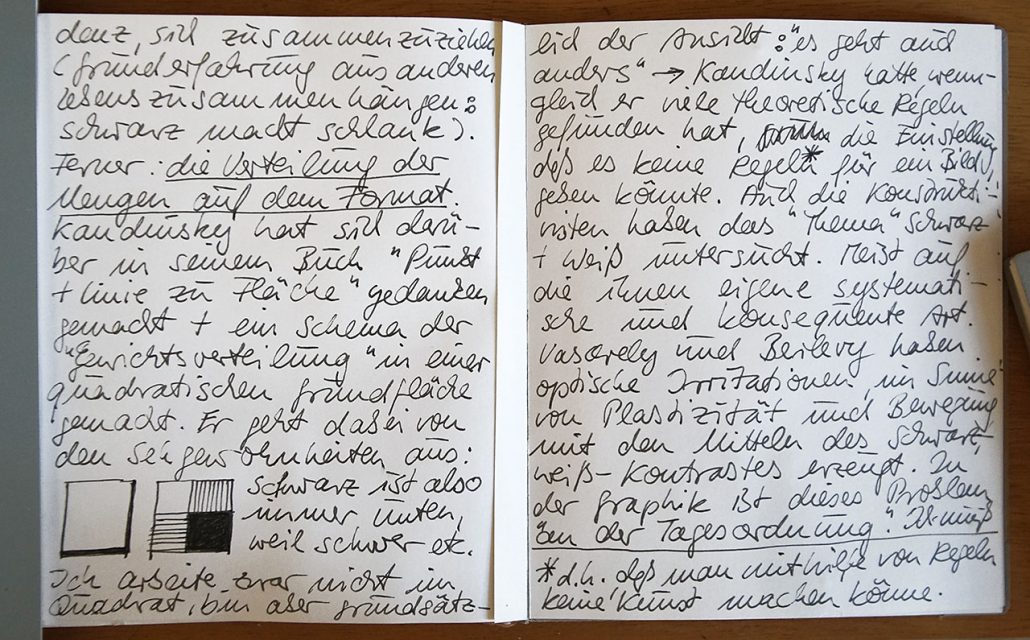 denz, sich zusammenzuziehen
(Grunderfahrung aus anderen
Lebenszusammenhängen:
schwarz macht schlank).
Ferner: die Verteilung der
Mengen auf dem Format.
Kandinsky hat sich darü-
ber in seinem Buch "Punkt
+ Linie zu Fläche" Gedanken
gemacht + ein Schema der
"Gewichtsverteilung" in einer
quadratischen Grundfläche
gemacht. Er geht dabei von
den Sehgewohnheiten aus:
schwarz ist also
immer unten,
weil schwer etc.
Ich arbeite zwar nicht im
Quadrat, bin aber grundsätz-
lich der Ansicht: "es geht auch
anders" → Kandinsky hatte, wenn-
gleich er viele theoretische Regeln
gefunden hat, die Einstellung
daß es keine Regeln* für ein Bild
geben könnte. Auch die Konstrukti-
visten haben das "Thema" schwarz
+ weiß untersucht. Meist auf
die ihnen eigene systemati-
sche und konsequente Art.
Vasarely und Berlevy haben
optische Irritationen "im Sinne"
von Plastizität und Bewegung
mit den Mitteln des schwarz,
weiß-Kontrastes erzeugt. In
der Graphik ist dieses Problem
"an der Tagesordnung".
*d.h. daß man mit Hilfe von Regeln
keine Kunst machen könne.